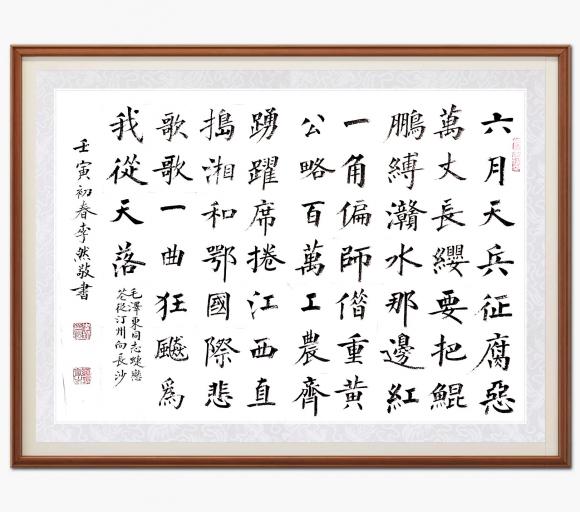 六月天兵征腐惡
萬丈長纓要把鯤
鵬縛灨水那邊紅
一角偏師借重黃
公略百萬工農齊
踴躍席捲江西直
搗湘和鄂國際悲
歌歌一曲狂飈爲
我從天落
毛澤東同志蝶戀
花從汀州向長沙
壬寅初春李然敬書